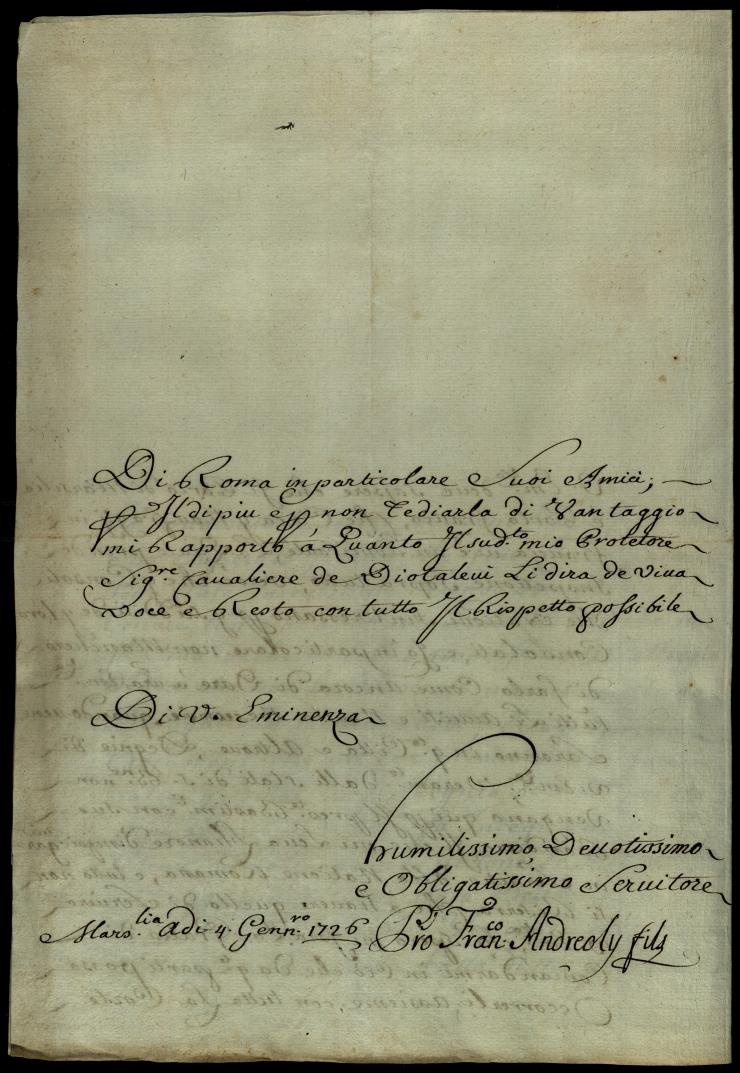 Di Roma in particolare Suoi Amici; —
Il di piu e p non Tediarla di Vantaggio
mi Rapporto á Quanto Il sud.to mio Protetore
Sig.re Caualiere de Diotaleui Li dira de viua
voce e Resto con tutto Il Rispetto possibile
Di V. Eminenza
humilissimo Deuotissimo
e Obligatissimo Seruitore
Mars.lia Adi 4. Genn.ro 1726
Pro Fran.co Andreoly fils